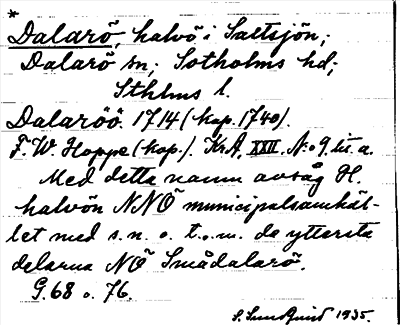 *
Dalarö, halvö i Saltsjön;
Dalarö sn; Sotholms hd;
Sthlms l.
Dalaröö. 1714 (kop. 1740).
F. W. Hoppe (kop.). KrA. XXII. N:o 9. lit. a.
Med detta namn avsåg H.
halvön NNÖ municipalsamhäl-
let med s. n. o. t.o.m. de yttersta
delarna NÖ Smådalarö.
G. 68 o. 76.
1935.